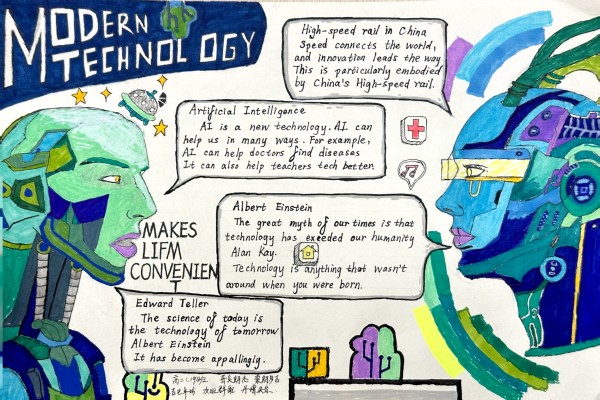 MODERN
TECHNOLOGY
High-speed rail in China
Speed connects the world,
and innovation leads the way
This is particularly embodied
by China's High-speed rail.
Artificial Intelligence
AI is a new technology. AI can
help us in many ways. For example,
AI can help doctors find diseases
It can also help teachers tech better.
MAKES
LIFM
CONVENIEN
T
Albert Einstein
The great myth of our times is that
technology has exeeded our humanity
Alan Kay.
Technology is anything that wasn't
around when you were born.
Edward Teller
The science of today is
the technology of tomorrow
Albert Einstein
It has become appallingly.